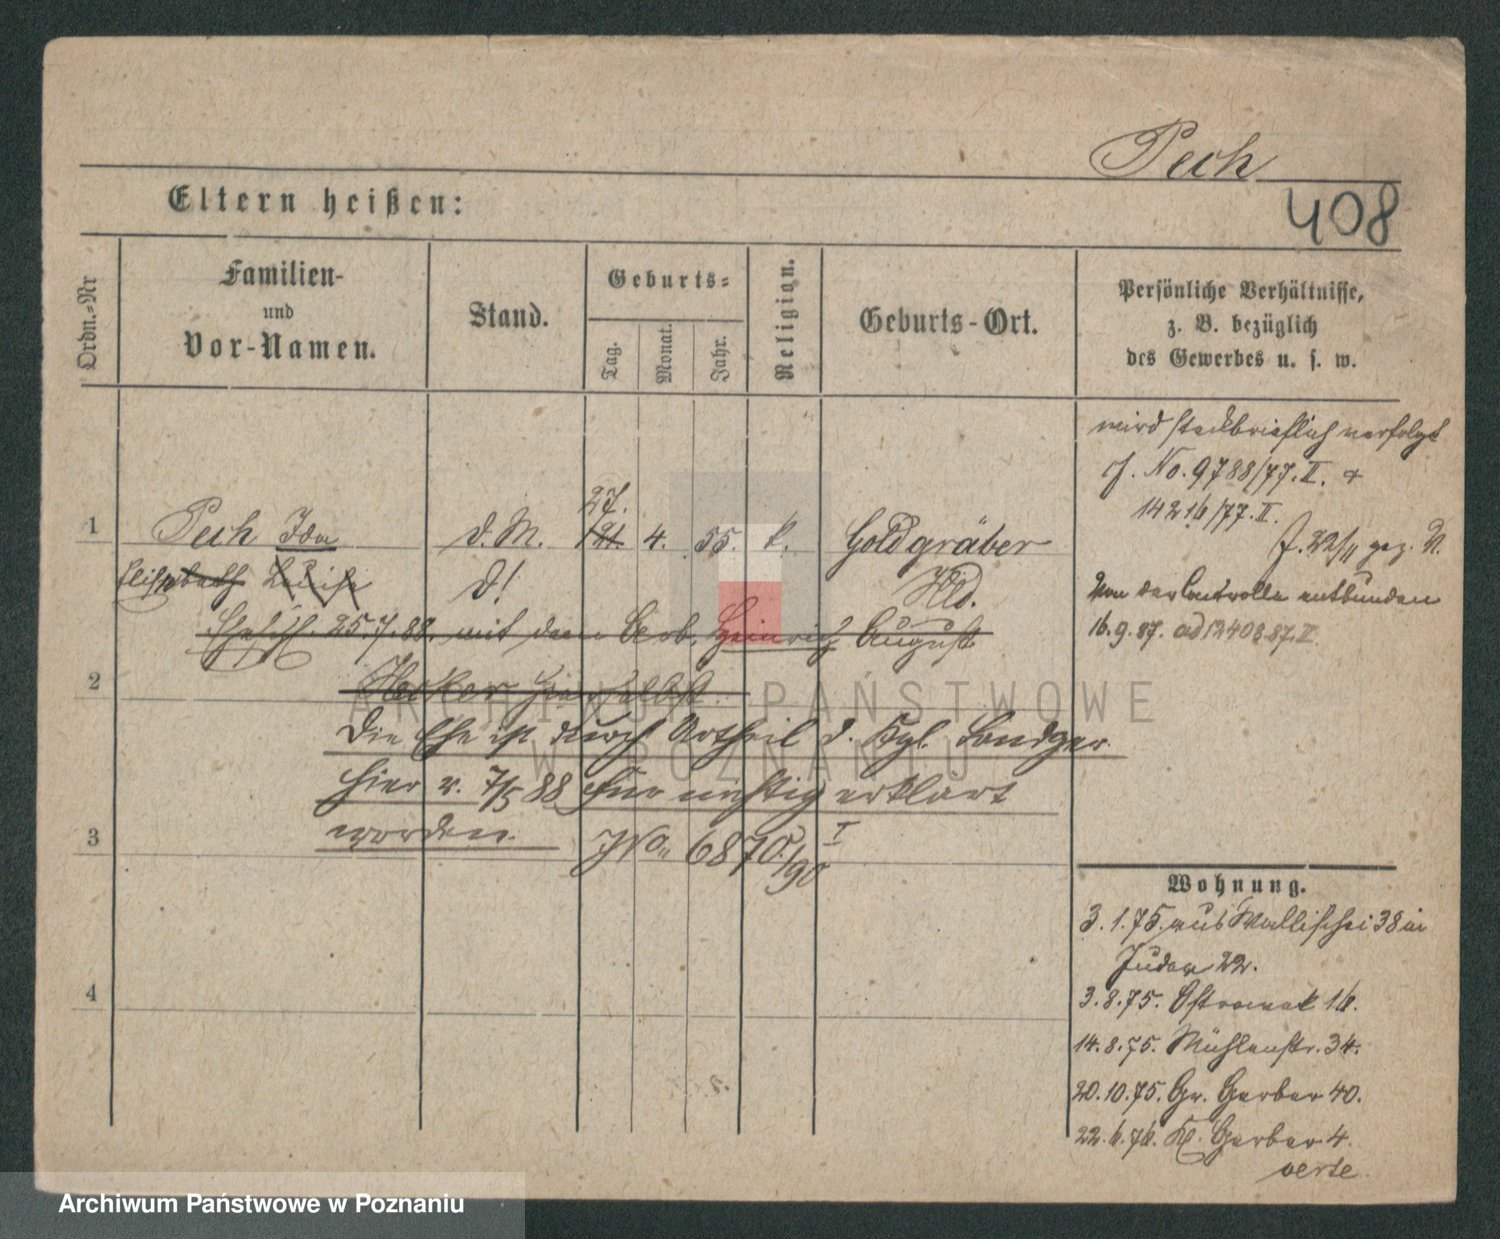 Pech
408
Eltern heißen:
Ordn.-Nr
Familien-
und
Vor-Namen.
Stand.
Geburts-
Tag.
Monat.
Jahr.
Religion.
Geburts-Ort.
Persönliche Verhältnisse,
z. B. bezüglich
des Gewerbes u. s. w.
wird steckbrieflich verfolgt
cf. No. 9788/77. II. +
14216/77. II.
J. 22/11 gez. N.
Von der Controlle entbunden
16.9.87. ad 12408.87 II
1
Pech Ida
d. M.
27.
21.
4.
55.
k.
Goldgräber
Hld.
Elisabeth Luise
d!
Ehesch. 25.7.82. mit dem Arb. Heinrich August
2
Hecker hierselbst.
Die Ehe ist durch Urtheil d. Kgl. Landger.
hier v. 7/5 88 für nichtig erklärt
worden.
No. 6870./90 I
3
4
Wohnung.
3.1.75. aus Wallischei 38 in
Juden 22.
3.8.75. Ostrowek 16.
14.8.75. Mühlenstr. 34.
20.10.75. Gr. Gerber 40.
22.6.76. Kl. Gerber 4.
verte
ARCHIWUM PAŃSTWOWE
W POZNANIU
Archiwum Państwowe w Poznaniu